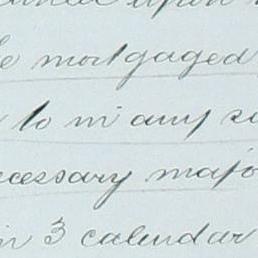 upon
mortgaged
to in any
cessary major
in 3 calendar